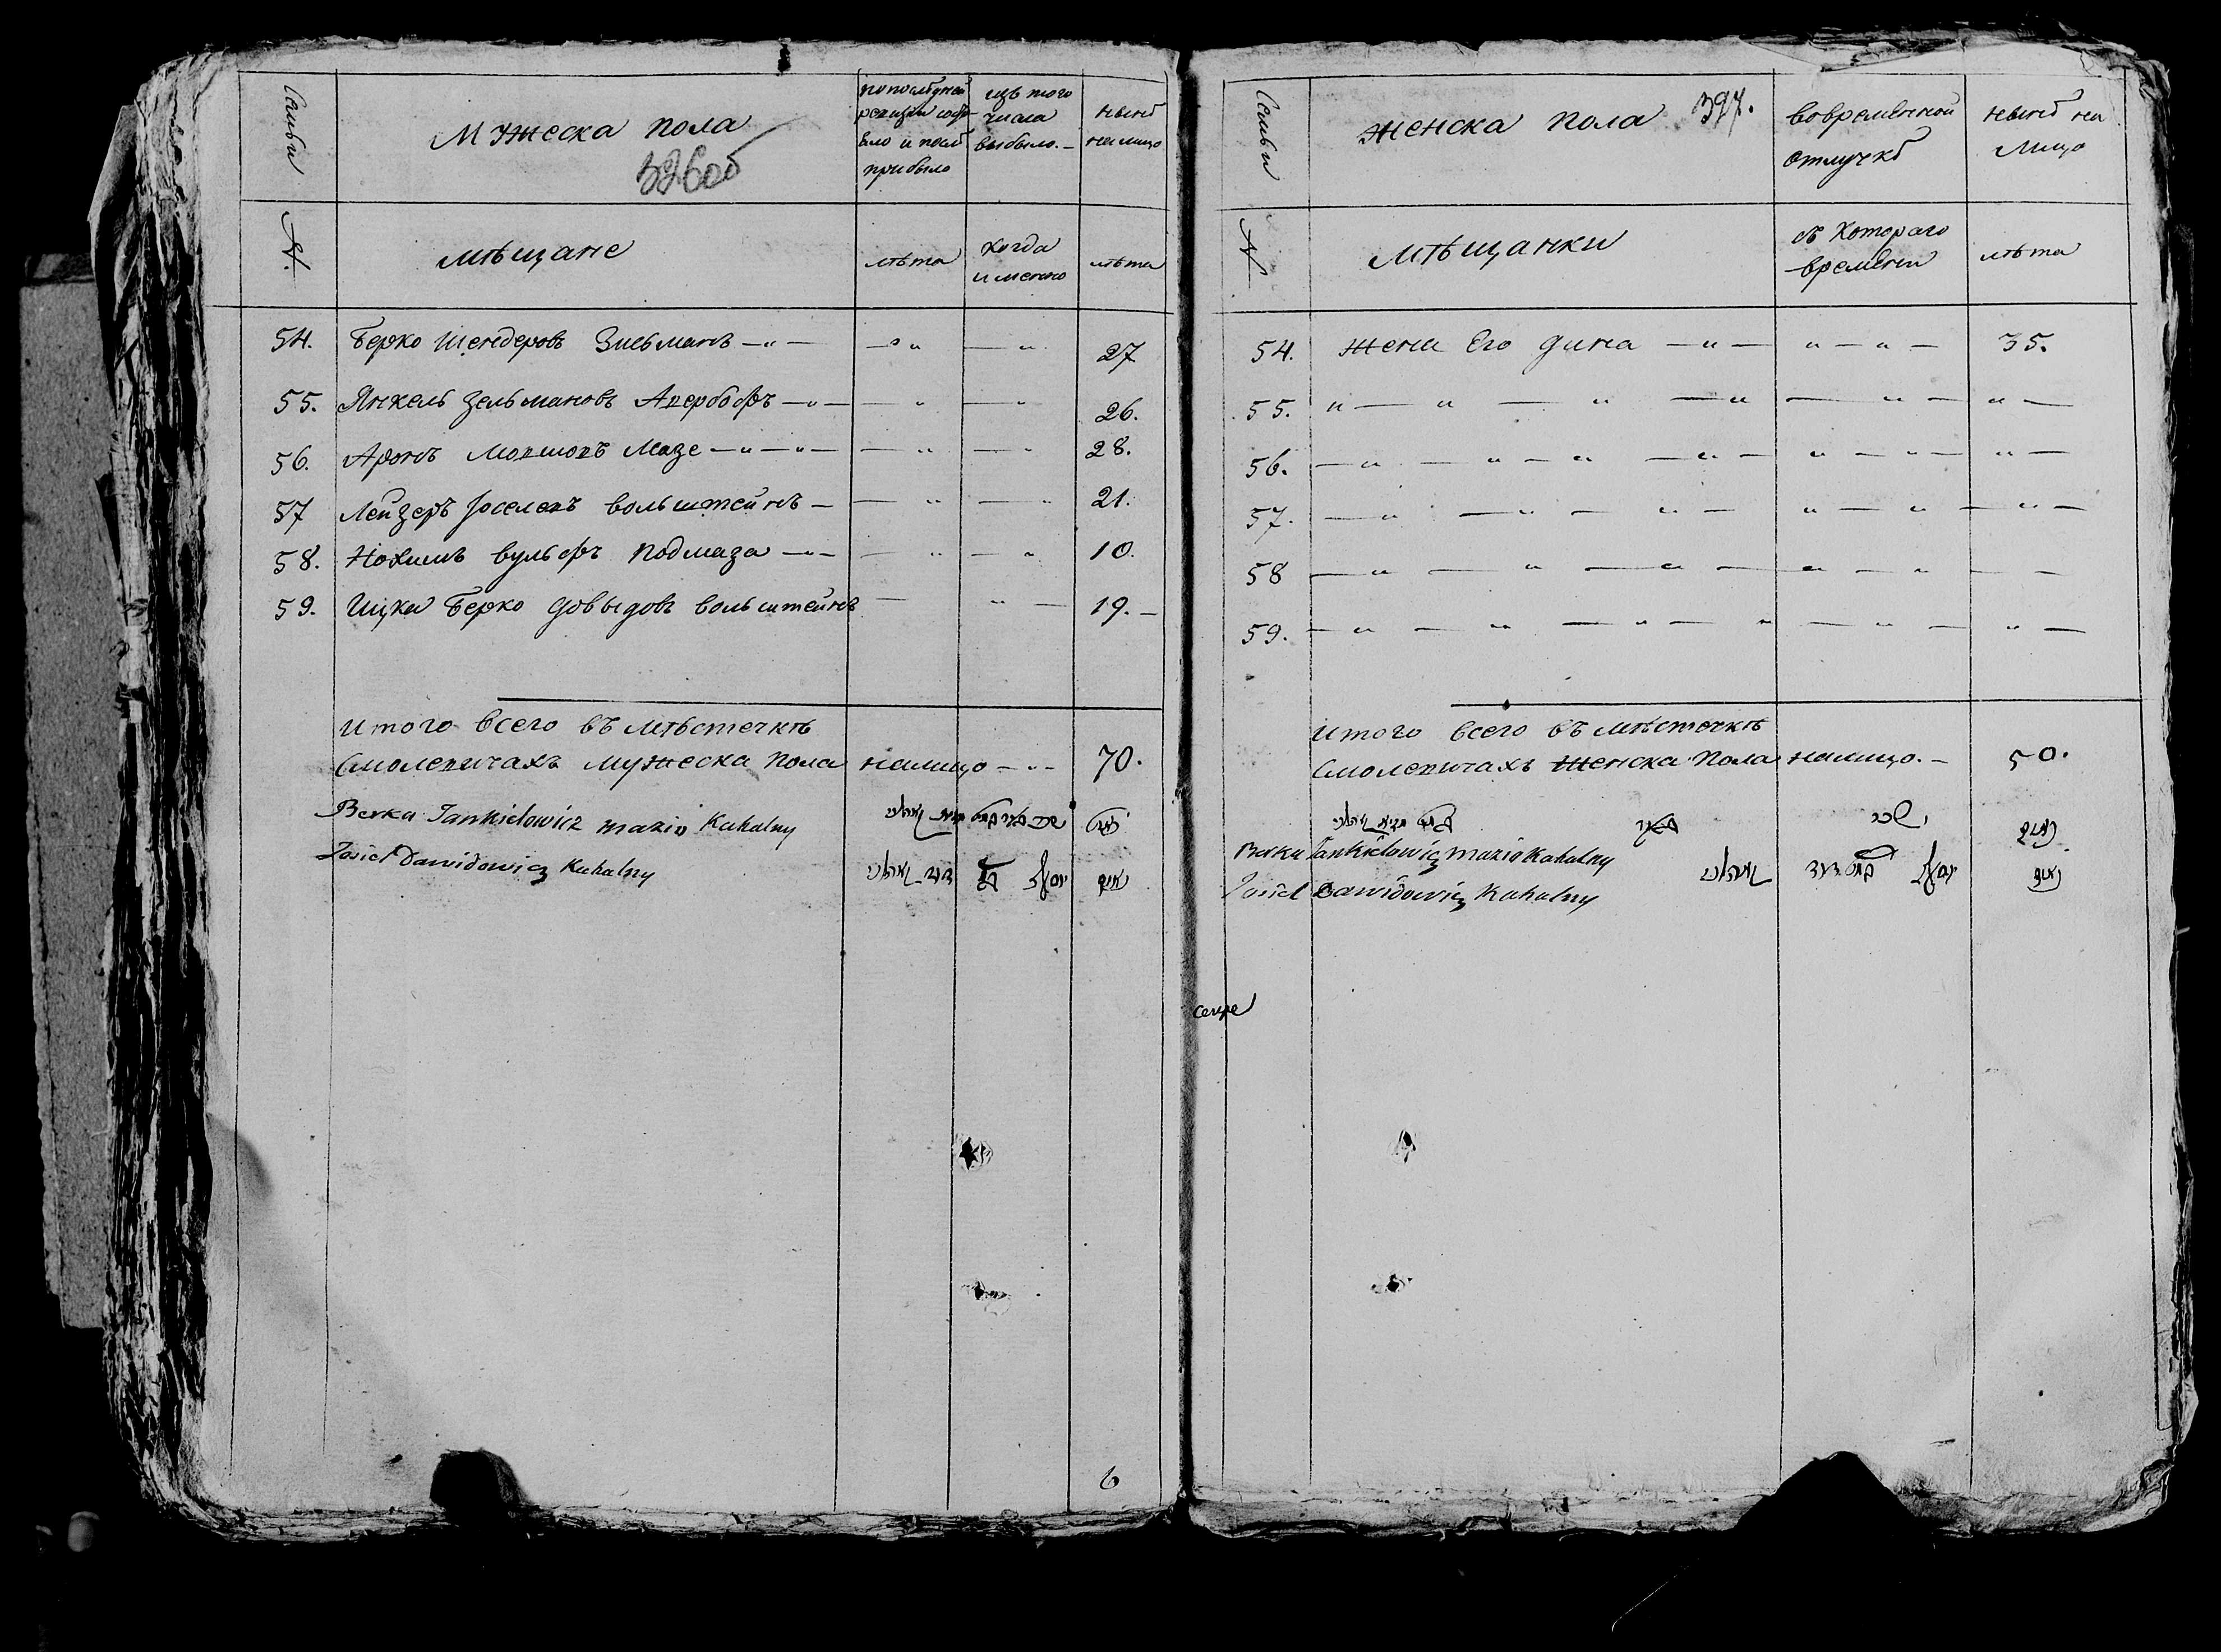 Семьи
Мужеска пола
326об
по последней
ревизии состо-
яло и после
прибыло
изъ того
числа
выбыло.-
нынѣ
налицо
№.
мѣщане
лѣта
когда
именно
лѣта
54. Берко Шендеровъ Зисьманъ — „ — 27
55. Янкель Зельмановъ 26.
56. Аронъ Мовшовъ Мазе — „ — „ — 28.
57 Лейзеръ Іоселевъ вольштейнъ — 21.
58. Нохимъ вульфъ Подмаза — „ — 10.
59. Ицка Берко Довыдовъ вольштейнъ 19. —
Итого всего въ мѣстечкѣ
Смолевичахъ мужеска пола налицо — „ - 70.
Berka Jankielowicz mazio Kahalny
Josiel Dawidowicz Kahalny
6
Семьи
Женска пола 327.
вовременной
отлучкѣ
нынѣ на
Лицо
№
мѣщанки
съ котораго
времени
лѣта
54. Жена Его Дина — „ — „ — „ — 35.
55. „ — „ — „ — „ — „ — „ —
56. — „ — „ — „ — „ — „ — „ — „ —
57. — „ — „ — „ — „ — „ — „ —
58 — „ — „ — „ — „ — „ — —
59. — „ — „ — „ — „ — „ — „ —
Итого всего въ мѣстечкѣ
Смолевичахъ Женска пола налицо. — 50.
Berka Jankielowicz mazio Kahalny
Josiel Dawidowicz Kahalny